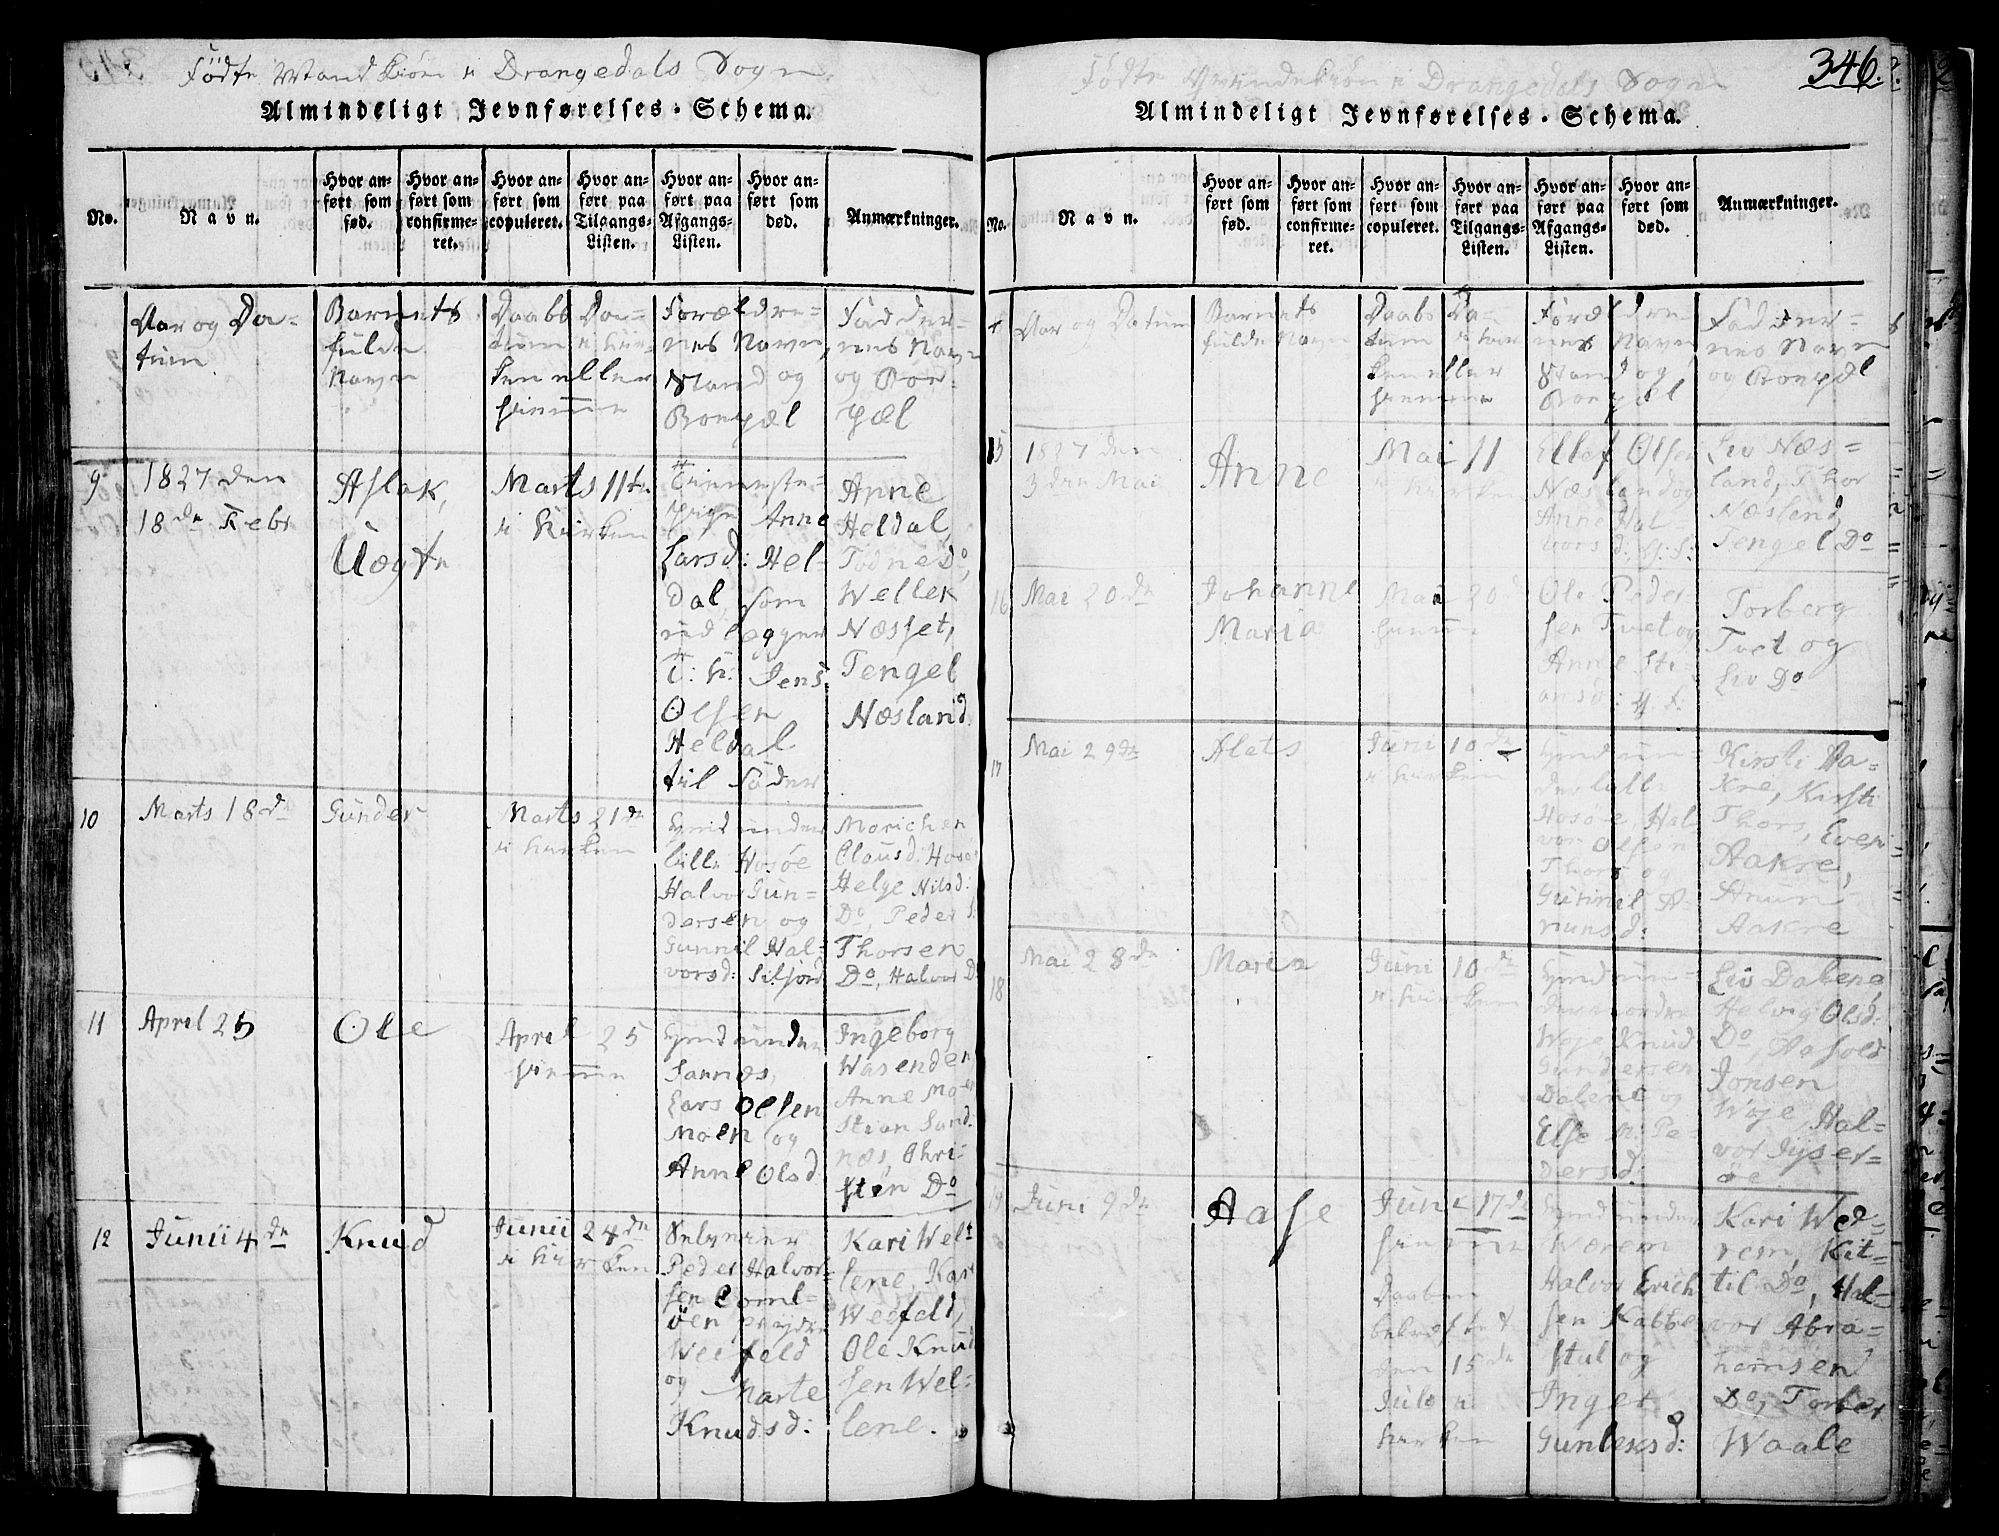 Fødte Mandkiøn i Drangedals Sogn
Almindeligt Jevnførelses-Schema.
No.
Navn.
Hvor an-
ført som
fød.
Hvor an-
ført som
confirme-
ret.
Hvor an-
ført som
copuleret.
Hvor an-
ført paa
Tilgangs-
Listen.
Hvor an-
ført paa
Afgangs-
Listen.
Hvor an-
ført som
død.
Anmærkninger.
Aar og Da-
tum.
Barnets
fulde
Navn
Daabs Da-
tum i kir-
ken eller
hiemme
Forældre-
nes Navn,
Stand og
Boepæl
Fadder-
nes Navn
og Boe-
pæl
9
1827 den
18de Febr
Aslak,
Uægte
Marts 11te
i Kirken
Tieneste-
pige Anne
Larsd: Hel-
dal, som
udlægger
U: k: Jens
Olsen
Heldal
til Fader
Anne
Heldal,
Todne Do,
Wellek
Næsset,
Tengel
Næsland
10
Marts 18de
Gunder
Marts 21de
i kirken
Gmd under
lille Hosøe
Halvor Gun-
dersen og
Gunnil Hal-
vorsd: Silsjord
Marichen
Clausd: Hosøe
Helge Nilsd:
Do, Peder
Thorsen
Do, Halvor Do
11
April 25
Ole
April 25
hiemme
Gmd under
Sannæs,
Lars Olsen
Moen og
Anne Olsd
Ingeborg
Wasenden
Anne Moen
Stian Sand-
næs Chri-
sten Do
12
Junii 4de
Knud
Junii 24de
i kirken
Selveier
Peder Halvor-
sen
Weefeld
og Marte
Knudsd:
Kari Wel-
lene, Kari
Weefeld,
Ole Knud
sen Wel-
lene.
346.
Fødte Qvindekiøn i Drangedals Sogn
Almindeligt Jevnførelses-Schema.
No.
Navn.
Hvor an-
ført som
fød.
Hvor an-
ført som
confirme-
ret.
Hvor an-
ført som
copuleret.
Hvor an-
ført paa
Tilgangs-
Listen.
Hvor an-
ført paa
Afgangs-
Listen.
Hvor an-
ført som
død.
Anmærkninger.
Aar og Datum
Barnets
fulde Navn
Daabs Da-
tum i kir
ken eller
hiemme
Foræl dre
nes Navn
Stand og
Boepæl
Fadder-
nes Navn
og Boepæl
15
1827 den
3die Mai
Anne
Mai 11
i kirken
Ellef Olsen
Næsland og
Anne Hal-
vorsd:
Liv Næs-
land, Thor
Næsland,
Tengel Do
16
Mai 20de
Johanne
Maria
Mai 20
Ole Peder
sen Tvet og
Anne Sti-
ansd:
Torberg
Tvet og
Liv Do
17
Mai 29de
Alets
Juni 10de
i kirken
Gmd un
der lille
Hosøe Hal
vor Olsen
Thors og
Gunnil A-
nunsd:
Kirsti Aa-
kre, Kirsti
Thors, Even
Aakre,
Anun
Aakre
18
Mai 28de
Maria
Juni 10de
i kirken
Gmd un-
der nordre
Woje Knud
Gundersen
Dalene og
Else M: Pe-
dersd:
Liv Dalene
Helvig Olsd:
Do, Aasold
Jonsen
Woje, Hal-
vor
øe
19
Juni 9de
Aase
Juni 17de
hiemme
Daaben
bekræftet
den 15de
Juli i
kirken
Gmd under
Wærem
Halvor Erich
sen Kabbe
stul og
Inger
Gunleksd:
Kari Wed-
rem, Kit-
til Do, Hal-
vor Abra-
hamsen
Do, Torber
Waale